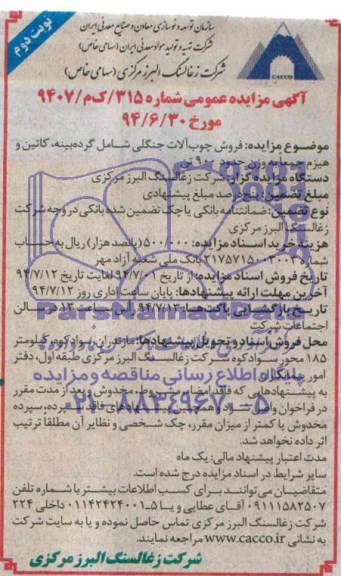 نوبت دوم
سازمان توسعه و نوسازی معادن و صنایع معدنی ایران
شرکت تهیه و تولید مواد معدنی ایران (سهامی خاص)
شرکت زغالسنگ البرز مرکزی (سهامی خاص)
CACCO
آگهی مزایده عمومی شماره ۳۱۵/ک‌م/۹۴۰۷
مورخ ۹۴/۶/۳۰
موضوع مزایده: فروش چوب‌آلات جنگلی شامل گرده‌بینه، کاتین و
هیزم جمعاً به وزن حدود ۹۰ تن
دستگاه مزایده گزار: شرکت زغالسنگ البرز مرکزی
مبلغ تضمین: پنج درصد مبلغ پیشنهادی
نوع تضمین: ضمانتنامه بانکی یا چک تضمین شده بانکی در وجه شرکت
زغالسنگ البرز مرکزی
هزینه خرید اسناد مزایده: ۵۰۰/۰۰۰ (پانصد هزار) ریال به حساب
بانک ملی شعبه آزاد مهر
تاریخ فروش اسناد مزایده: از تاریخ ۹۴/۷/۰۱ لغایت تاریخ ۹۴/۷/۱۲
آخرین مهلت ارائه پیشنهادها: پایان ساعت اداری روز ۹۴/۷/۱۲
تاریخ بازگشایی پاکت‌ها: ۹۴/۷/۱۳ ساعت ۱۳ در سالن
اجتماعات شرکت
محل فروش اسناد و تحویل پیشنهادها: مازندران، سوادکوه، کیلومتر
۱۸۵ محور سوادکوه شرکت زغالسنگ البرز مرکزی طبقه اول، دفتر
امور پیمانکاران
به پیشنهادهایی که فاقد امضاء، مشروط، مخدوش و بعد از مدت مقرر
در فراخوان واصل شود و همچنین به پیشنهادهای فاقد سپرده، سپرده
مخدوش یا کمتر از میزان مقرر، چک شخصی و نظایر آن مطلقا ترتیب
اثر داده نخواهد شد.
مدت اعتبار پیشنهاد مالی: یک ماه
سایر شرایط در اسناد مزایده درج شده است.
متقاضیان می‌توانند برای کسب اطلاعات بیشتر با شماره تلفن
۰۹۱۱۱۵۸۲۵۰۷ آقای عطایی و یا ۵-۰۱۱۴۲۴۲۴۰۰۱ داخلی ۲۲۴
شرکت زغالسنگ البرز مرکزی تماس حاصل نموده و یا به سایت شرکت
به نشانی www.cacco.ir مراجعه نمایند.
شرکت زغالسنگ البرز مرکزی
پایگاه اطلاع رسانی مناقصه و مزایده
۰۲۱-۸۸۳۴۹۶۷۰-۵